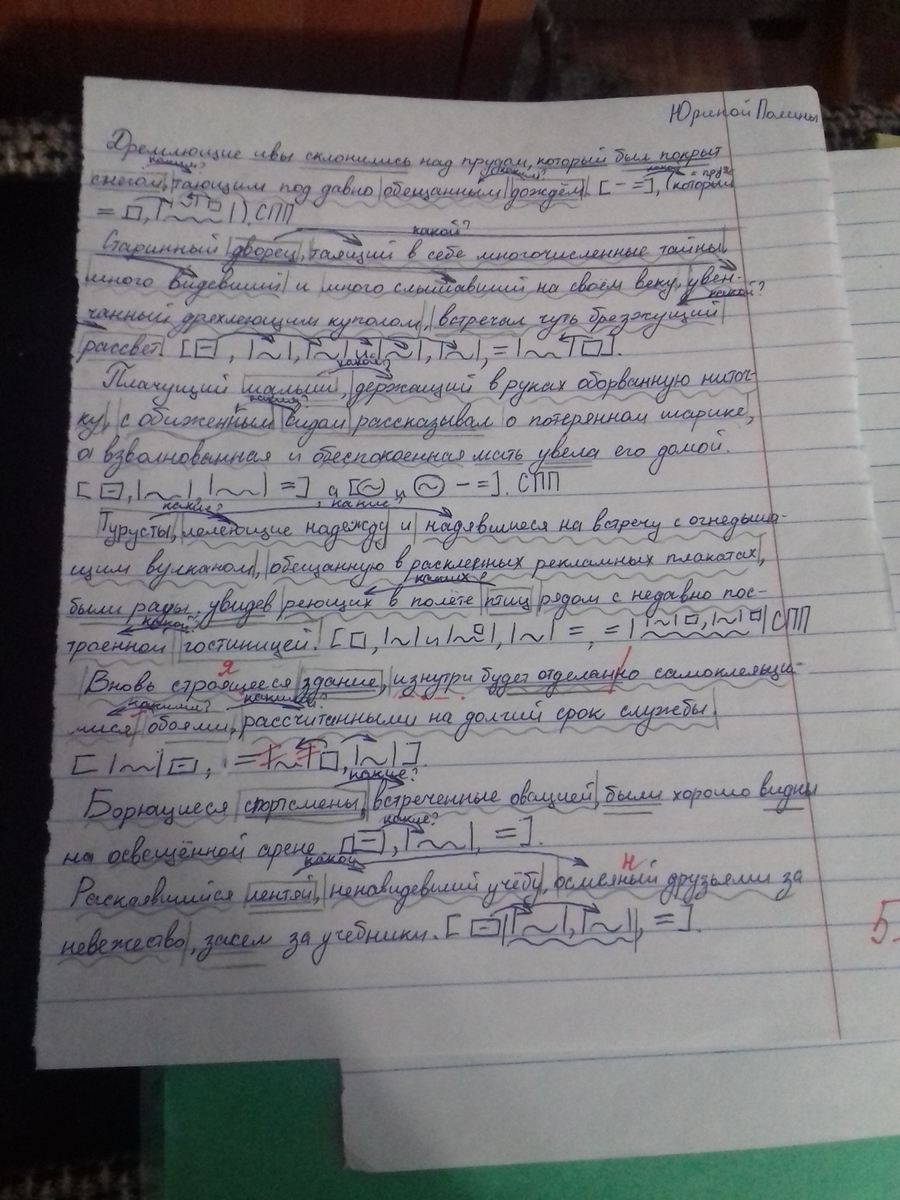 Юриной Полины
Дремлющие ивы склонились над прудом, который был покрыт
каким? каким? какой? = пруд
снегом, тающим под давно обещанным дождём. [ - = ], (который
= □, |~~~□|). СПП
какой?
Старинный дворец, таящий в себе многочисленные тайны
много видевший и много слышавший на своём веку, увен-
какой?
чанный дряхлеющим куполом, встречал чуть брезжущий
рассвет. [□, |~|, |~| и |~|, |~|, = |~|□].
какой?
Плачущий малыш, держащий в руках оборванную ниточ-
каким?
ку, с обиженным видом рассказывал о потерянном шарике,
а взволнованная и обеспокоенная мать увела его домой.
[□, |~|, |~| =], а [~ и ~ - =]. СПП
какие? какие?
Турусты, лелеющие надежду и надявшиеся на встречу с огнедыша-
щим вулканом, обещанную в расклеенных рекламных плакатах,
каких?
были рады, увидев реющих в полёте птиц рядом с недавно пос-
какой?
троенной гостиницей. [□, |~| и |~□|, |~| =, = |~□, |~|□|] СПП
я
Вновь строящееся здание, изнутри будет отделанно самоклеящи-
какими? какими?
мися обоями, рассчитанными на долгий срок службы.
[ |~|□, = |~|□, |~| ].
какие?
Борющиеся спортсмены, встреченные овацией, были хорошо видны
какие?
на освещённой арене. [□, |~|, = ].
какой н
Раскаявшийся лентяй, ненавидевший учёбу, осмеяный друзьями за
невежество, засел за учебники. [□ |~|, |~|, = ].
5